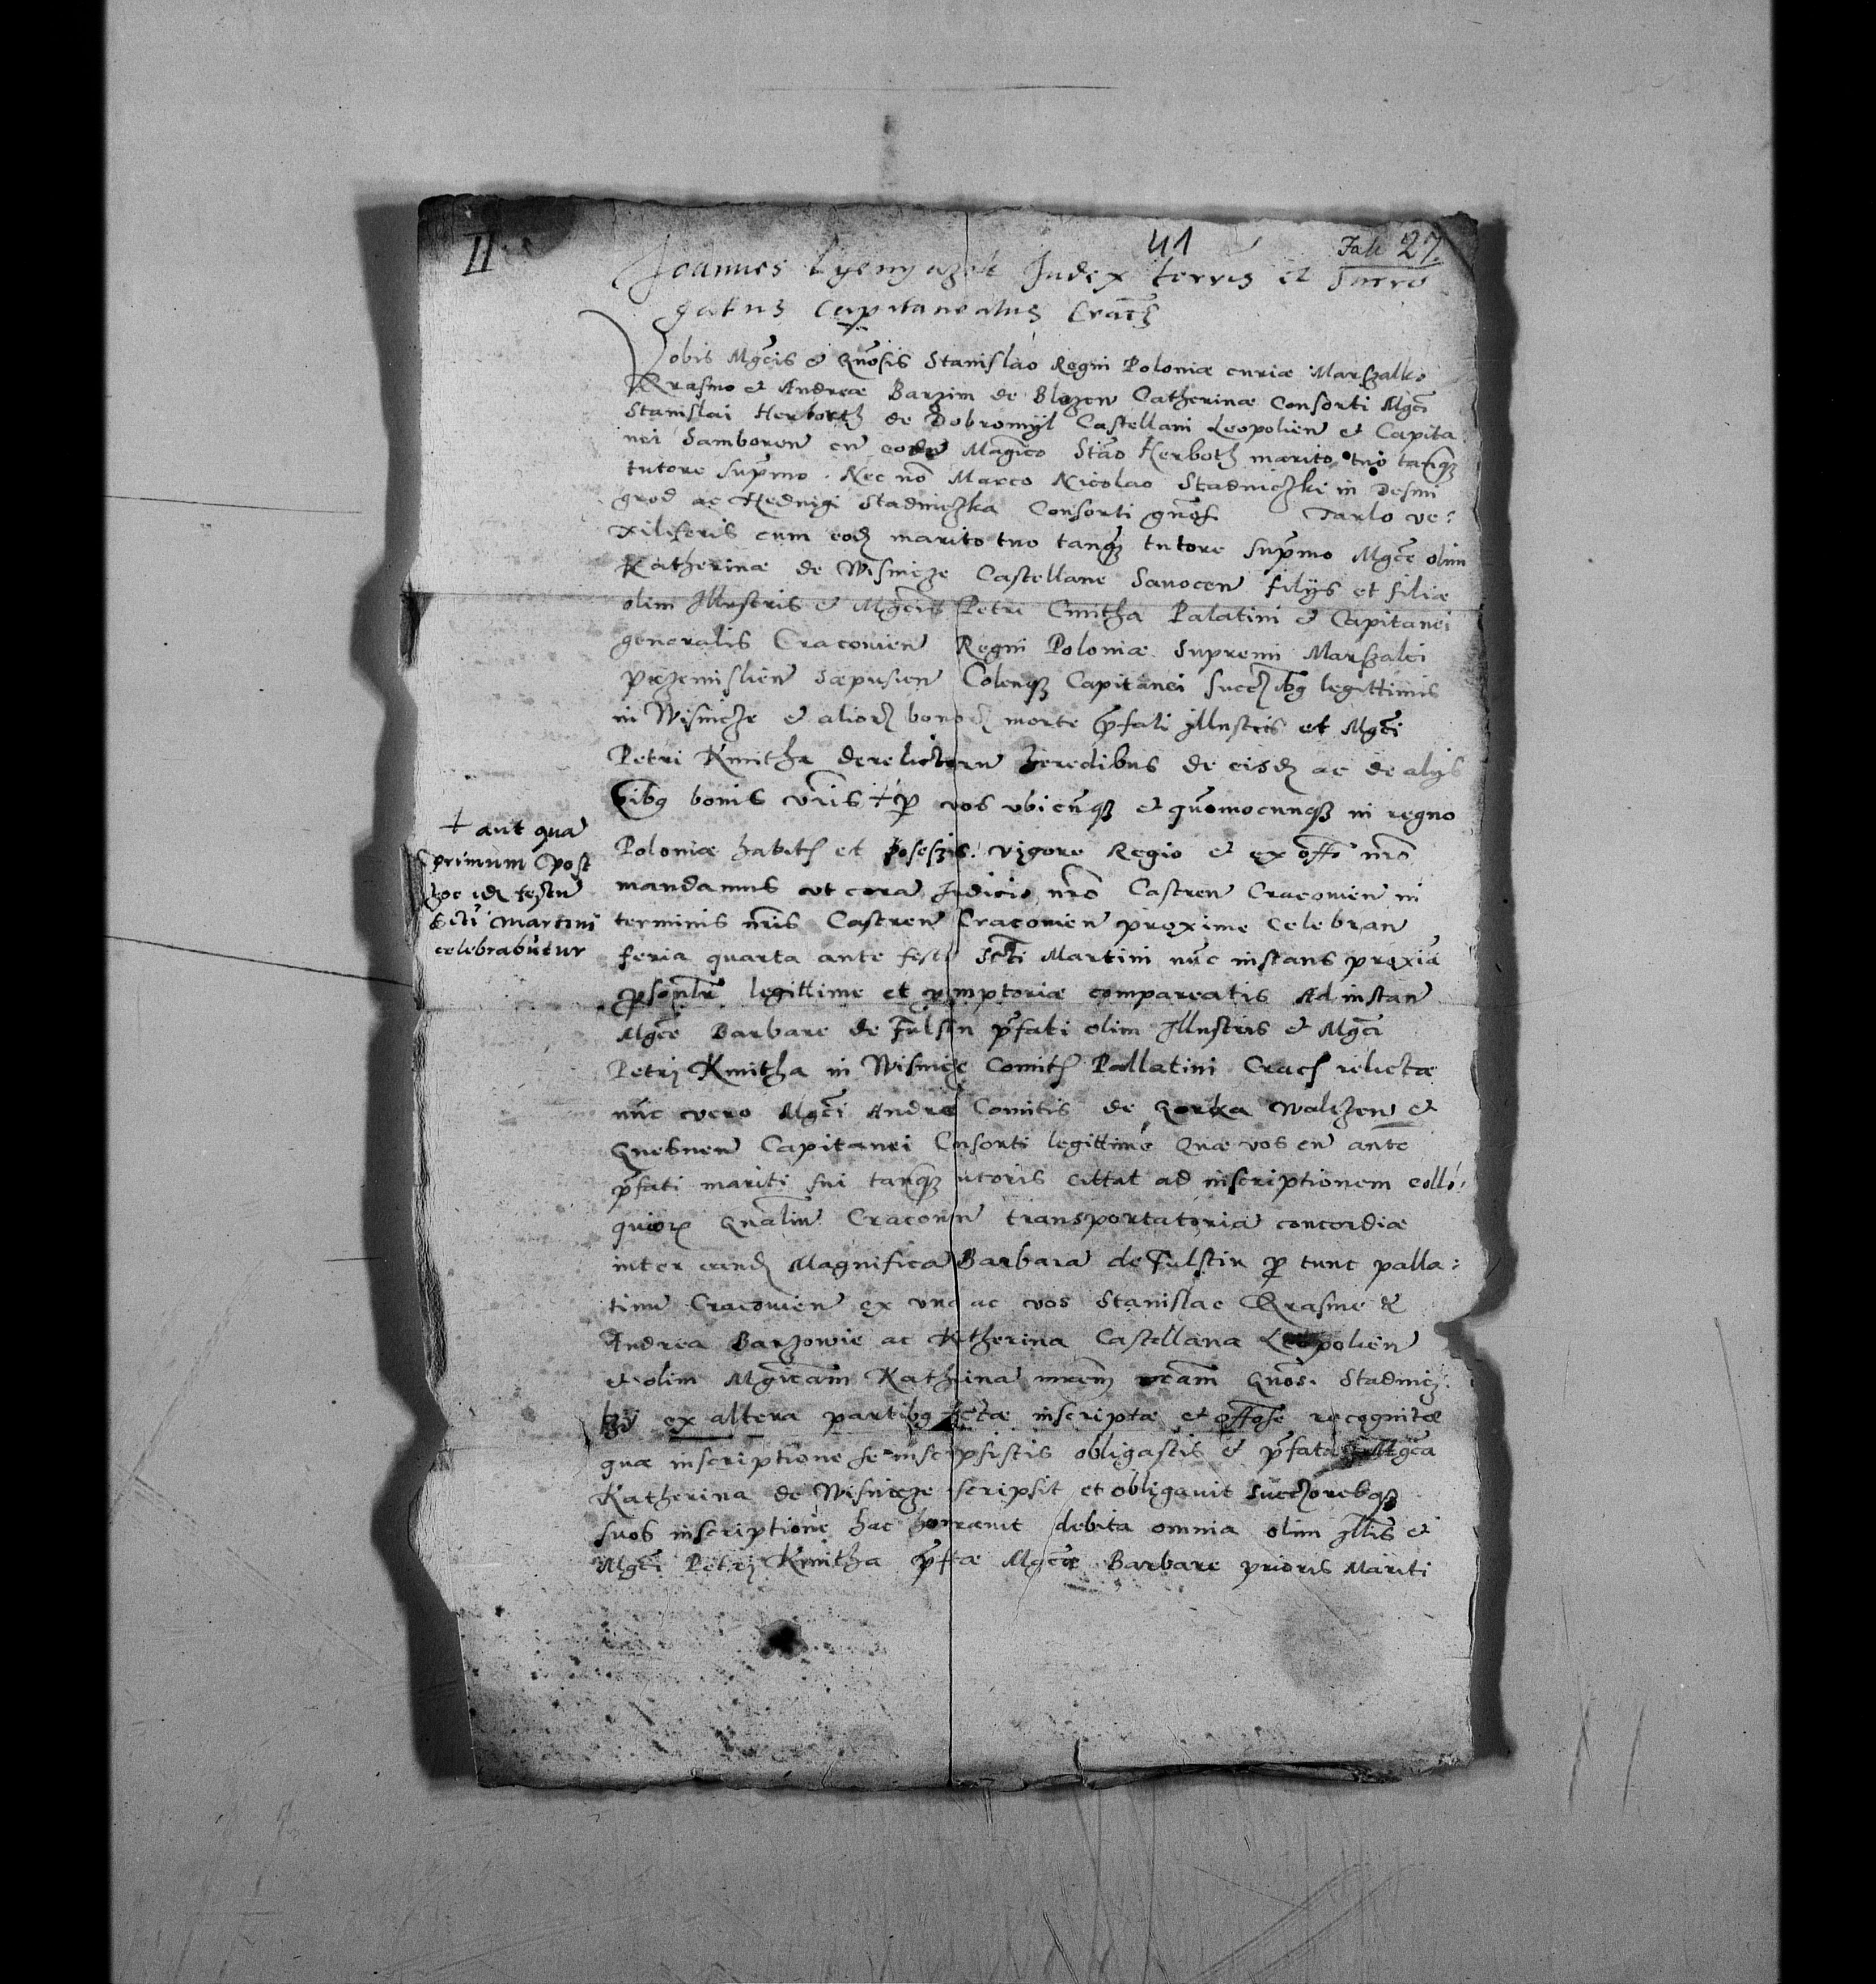 II
41
Fasc 27.
Joannes Index terrs et Surro
gatus Capitaneatus Crac̃
Vobis Mgcis et Gn̄osis Stanislao Regni Poloniæ curiæ Marszalko
Erasmo et Andreæ Barzim de Blozen Catherinæ Consorti Mgci
Stanislai Herborth de Dobromÿl Castellani Leopolien et Capita
nei Samboren cū eodē Magn̄co Stāo Herboth marito tuo tanqz
tutore sup̄mo. Nec nō Marco Nicolao Stadniczki in Desni
grod ac Hedvigi Stadniczka Consorti gn̄osi Tarlo ve:
xiliferis cum eodz marito tuo tanqz tutore sup̄mo Mgcæ olim
Katherinæ de Wisnicze Castellane Sanocen filijs et filiæ
olim Illustris et Mgcis Petri Cmitha Palatini et Capitanei
generalis Cracovien Regni Poloniæ Supremi Marszalci
Przemislien Scepusien Colenqz Capitanei succz ibq legittimis
in Wisnicze et aliorz bonorz morte p̄fati Illustris et Mgci
Petri Kmitha derelictorū heredibus de eisdz ac de alijs
oībq bonis vr̄is + p vos vbicūqz et quomocunqz in regno
Poloniæ habitis et possessis. vigore Regio et ex offo nr̄o
mandamus vt corā Judicio nr̄o Castren Cracovien in
terminis nr̄is Castren Cracovien proxime celebran
feria quarta ante festū Scti Martini nūc instans proxiā
p̄sonlr̄ legittime et p̄mptoriæ compareatis Ad instan
Mgcæ Barbare de Fulstin p̄fati olim Illustris et Mgci
Petrj Kmitha in Wisnicze Comits Pallatini Cracs relictæ
nūc vero Mgci Andreæ Comitis de Gorka Walczen et
Gnesnen Capitanei Consorti legittimæ Quæ vos cū ante
p̄fati mariti sui tanqz tutoris cittat ad inscriptionem collo:
quiorz Gn̄aliū Cracovien transportatoriā concordiæ
inter eandz Magnificā Barbarā de Fulstin p tunc palla:
tinā Cracovien ex vna ac vos Stanislae Erasme et
Andrea Barzowie ac Katherina Castellana Leopolien
et olim Mgn̄icam Katherinā mrem vram Gn̄os. Stadnicz:
kzÿ ex altera partibq factæ inscriptæ et offose recognitæ
quæ inscriptione se inscripsistis obligastis et p̄fata Mgca
Katherina de Wisnicze scripsit et obligavit succzorebqz
suos inscriptione hac debita omnia olim Illis et
Mgci Petrj Kmitha p̄ftæ Mgcæ Barbare prioris Mariti
+ aut quā
primum post
hoc idz festū
Scti Martini
celebrabūtur